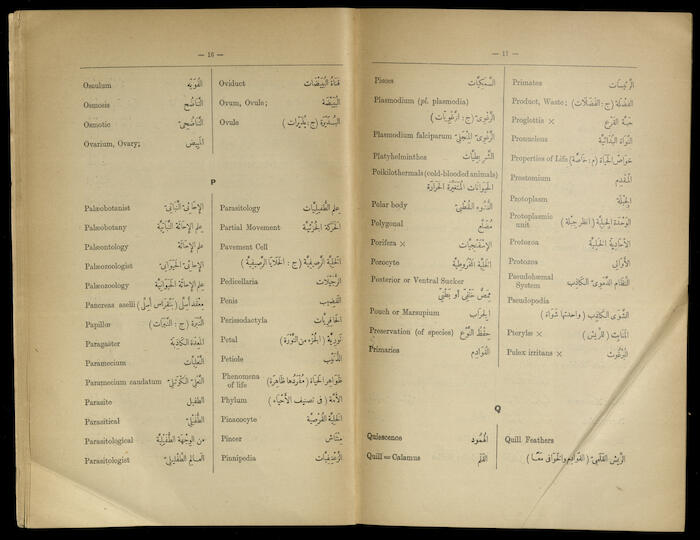 — 16 —
Osculum الفُوَيْه
Osmosis التَّنَاضُح
Osmotic التَّنَاضُحِيّ
Ovarium, Ovary; المَبِيض
Oviduct قَنَاةُ البُيَيْضَات
Ovum, Ovule; البُيَيْضَة
Ovule البُذَيْرَة (ج: بُذَيْرَات)
P
Palæobotanist الإِحَاثِيّ النَّبَاتِيّ
Palæobotany عِلم الإِحَاثَة النَّبَاتِيَّة
Paleontology عِلم الإِحَاثَة
Palæozoologist الإِحَاثِيّ الحَيَوَانِيّ
Palæozoology عِلم الإِحَاثَة الحَيَوَانِيَّة
Pancreas aselli
Papillæ
Paragaster المَعِدَة الكَاذِبَة
Paramecium
Paramecium caudatum
Parasite الطفيل
Parasitical الطُّفَيْلِيّ
Parasitological من الوِجْهَة الطُّفَيْلِيَّة
Parasitologist العَالِم الطُّفَيْلِيّ
Parasitology عِلم الطُّفَيْلِيَّات
Partial Movement الحَرَكَة الجُزْئِيَّة
Pavement Cell
الخَلِيَّة الرَّصِيفِيَّة (ج: الخَلَايَا الرَّصِيفِيَّة)
Pedicellaria الرُّجَيْلَات
Penis القَضِيب
Perissodactyla الحَافِرِيَّات
Petal
Petiole الذُّنَيْب
Phenomena of life ظَوَاهِر الحَيَاة (مُفْرَدُهَا ظَاهِرَة)
Phylum الأُمَّة (فى تصنيف الأَحْيَاء)
Pinacocyte الخَلِيَّة القُرْصِيَّة
Pincer مِنْتَاش
Pinnipedia الزِّعْنِفِيَّات
— 17 —
Pisces السَّمَكِيَّات
Plasmodium (pl. plasmodia)
Plasmodium falciparum
Platyhelminthes الشَّرِيطِيَّات
Poikilothermals (cold-blooded animals)
الحَيَوَانَات المُتَغَيِّرَة الحَرَارَة
Polar body النُّتُوء القُطْبِيّ
Polygonal مُضَلَّع
Porifera × الإِسْفَنْجِيَّات
Porocyte
Posterior or Ventral Sucker
مِمَصّ خَلْفِيّ أو بَطْنِيّ
Pouch or Marsupium الجِرَاب
Preservation (of species) حِفْظ النَّوْع
Primaries القَوَادِم
Primates الرَّئِيسَات
Product, Waste; الفَضْلَة (ج: الفَضَلَات)
Proglottis × حَبَّة القَرْع
Pronucleus النَّوَاة البَدَائِيَّة
Properties of Life خَوَاصّ الحَيَاة (م: خَاصَّة)
Prostomium المُقَدِّم
Protoplasm الجِبْلَة
Protoplasmic unit الوَحْدَة الجِبْلِيَّة (انظر جِبْلَة)
Protozoa
Protozoa الأَوَّالِى
Pseudohæmal System النِّظَام الدَّمَوِيّ الكَاذِب
Pseudopodia
الشَّوَى الكَاذِب (واحدتها شَوَاة)
Pterylæ ×
Pulex irritans × البُرْغُوث
Q
Quiescence الهُمُود
Quill = Calamus القَلَم
Quill Feathers
الرِّيش القَلَمِيّ (القَوَادِم والخَوَافِى مَعًا)